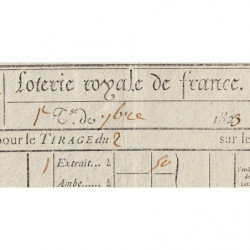 Loterie royale de france.
1er T.re de xbre 1823
pour le TIRAGE du 2 sur le
1 Extrait.. à 50
Ambe..... à